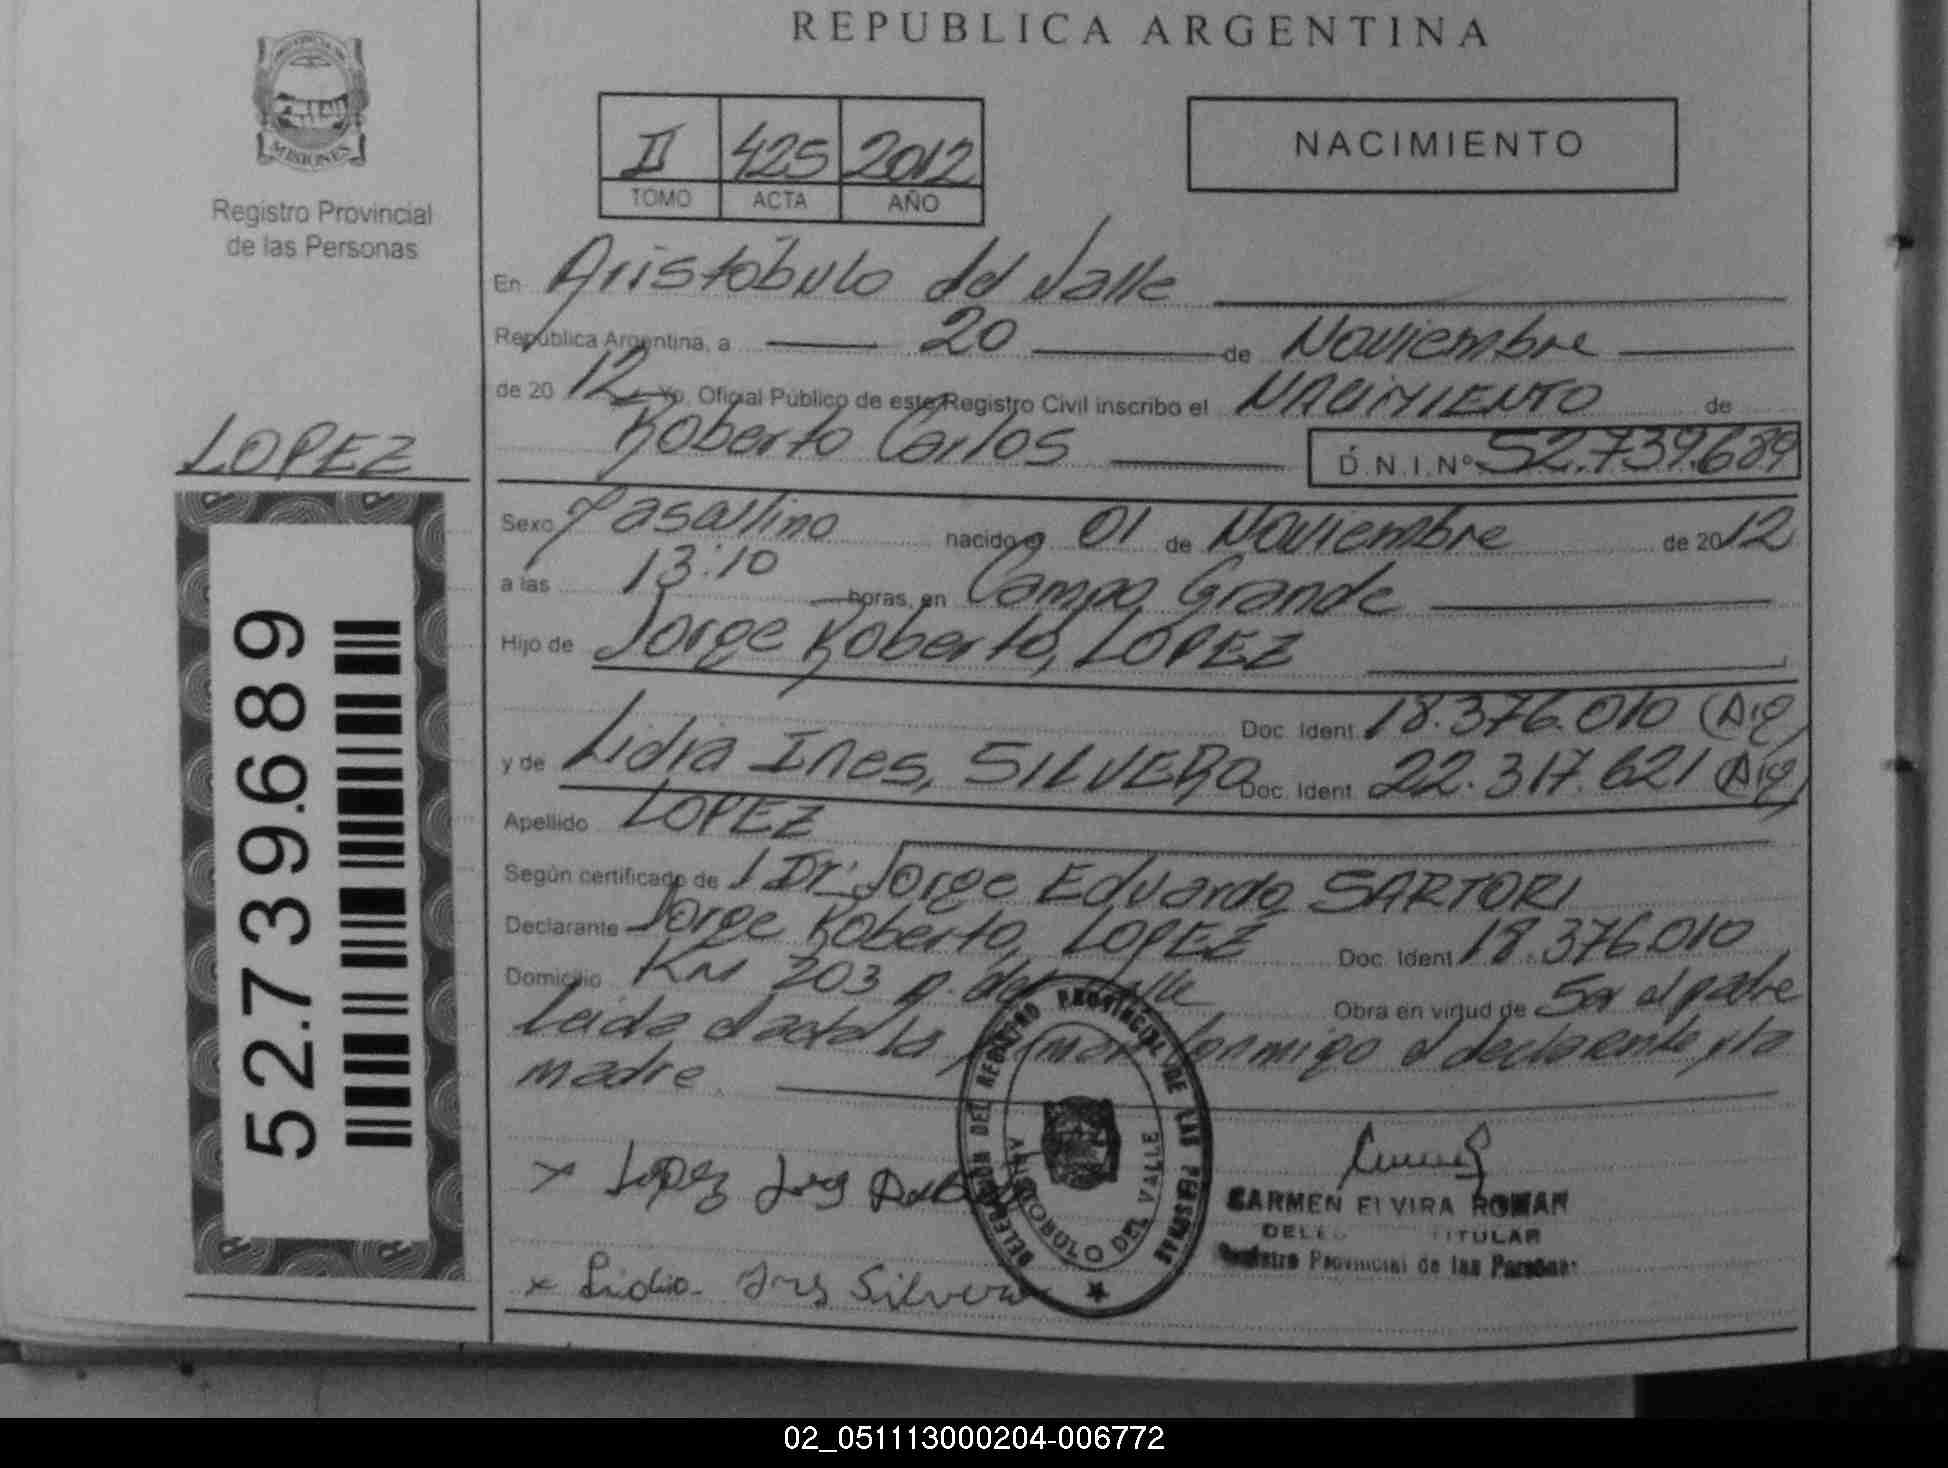 REPUBLICA ARGENTINA
PROVINCIA DE
MISIONES
Registro Provincial
de las Personas
II 425 2012
TOMO ACTA AÑO
NACIMIENTO
En Aristóbulo del Valle
República Argentina, a 20 de Noviembre
de 20 12 Yo, Oficial Público de este Registro Civil inscribo el NACIMIENTO de
Roberto Carlos D.N.I.Nº 52.739.689
LOPEZ
Sexo Masculino nacido el 01 de Noviembre de 2012
a las 13:10 horas, en Campo Grande
Hijo de Jorge Roberto, LOPEZ
Doc. Ident. 18.376.010 (Arg)
y de Lidia Ines, SILVERO Doc. Ident. 22.317.621 (Arg)
Apellido LOPEZ
Según certificado de 1 Dr: Jorge Eduardo SARTORI
Declarante Jorge Roberto, LOPEZ Doc. Ident. 18.376.010
Domicilio Km 203 A. del Valle Obra en virtud de Ser el padre
Leida el acta la firman conmigo el declarante y la
madre.
52.739.689
x Lopez Jorge
x Lidia Ines Silvero
DELEGACION DEL REGISTRO PROVINCIAL DE LAS PERSONAS
ARISTOBOLO DEL VALLE
CARMEN ELVIRA ROMAN
TITULAR
Registro Provincial de las Personas
02_051113000204-006772